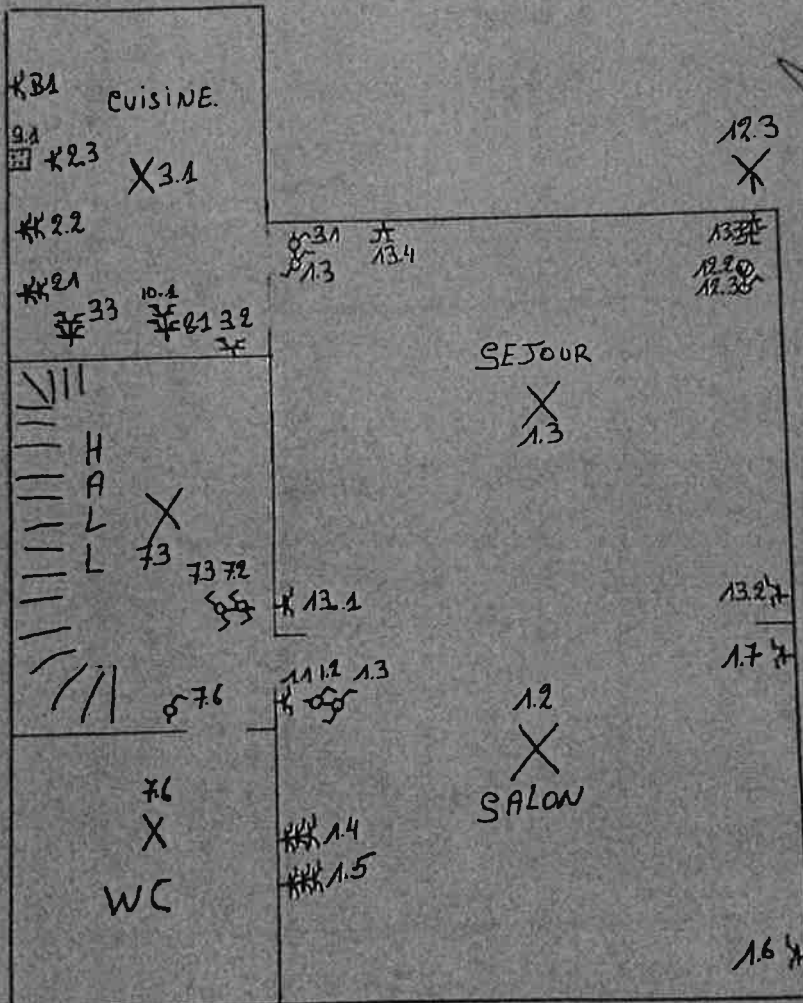 B1
CUISINE.
9.1
2.3
3.1
2.2
2.1
3.3
10.1
8.1
3.2
12.3
3.1
1.3
13.4
13.3
12.2
12.3
SEJOUR
1.3
HALL
7.3
7.3 7.2
13.1
13.2
1.7
1.1 1.2 1.3
7.6
1.2
SALON
7.6
WC
1.4
1.5
1.6